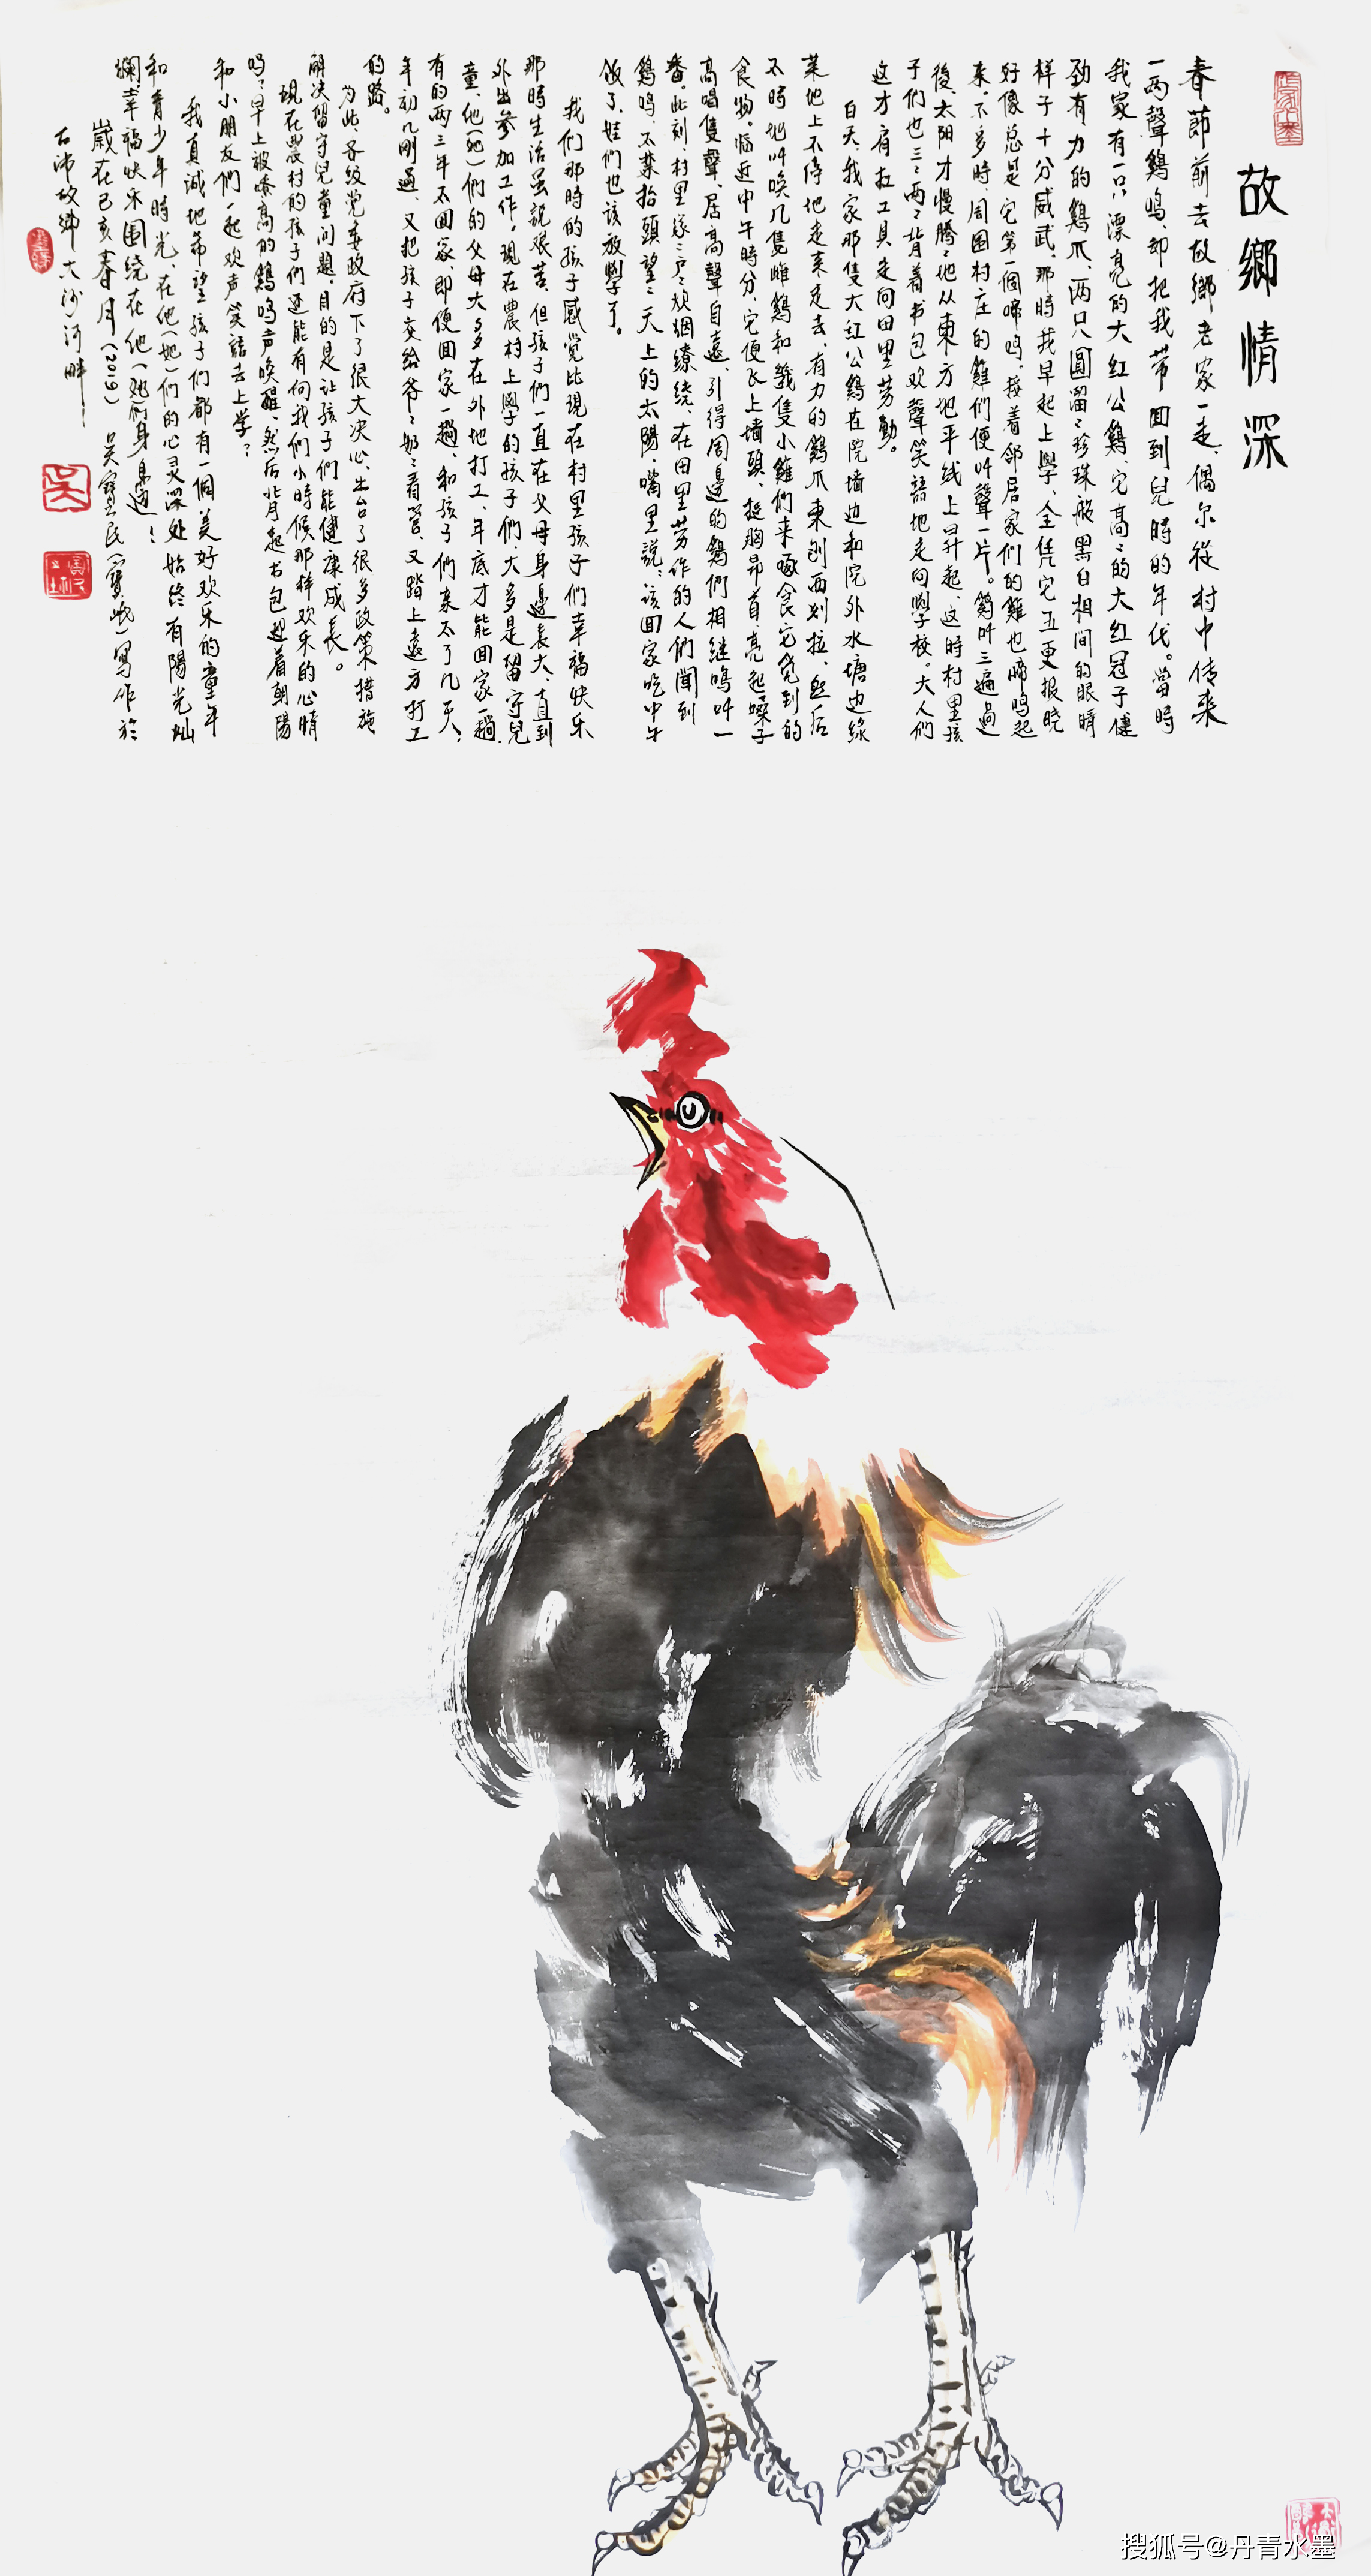 故鄉情深
春節前去故鄉老家一走、偶尔從村中傳来
一两聲鷄鳴、却把我带回到兒時的年代。當時
我家有一只漂亮的大红公鷄、它高〻的大红冠子健
劲有力的鷄爪、两只圓溜〻珍珠般黑白相间的眼睛
样子十分威武。那時我早起上學、全凭它五更报晓
好像总是它第一個啼鸣。接着邻居家们的雞也啼鸣起
来。不多時、周围村庄的雞们便叫聲一片。鷄叫三遍過
後、太阳才慢腾〻地从東方地平线上昇起、这時村里孩
子们也三〻两〻背着书包欢聲笑語地走向學校。大人们
这才肩扛工具走向田里劳動。
白天、我家那隻大红公鷄在院墙边和院外水塘边緣
菜地上不停地走来走去、有力的鷄爪東刨西划拉、然后
不時地叫唤几隻雌鷄和幾隻小雞们来啄食它凳到的
食物。临近中午時分、它便飞上墙頭、挺胸昂首、亮起嗓子
高唱隻聲、居高聲自遠、引得周邊的鷄們相继鳴叫一
番。此刻、村里逐〻户〻炊烟缭绕、在田里劳作的人们聞到
鷄鸣、不禁抬頭望〻天上的太陽、嘴里説〻该回家吃中午
饭了、娃们也该放學了。
我们那時的孩子感觉比現在村里孩子们幸福快乐
那時生活虽説艰苦、但孩子们一直在父母身邊長大、直到
外出参加工作。現在農村上學的孩子們、大多是留守兒
童、他(她)们的父母大多在外地打工、年底才能回家一趟、
有的两三年不回家、即便回家一趟、和孩子们亲不了几天、
年初几刚過、又把孩子交给爷〻奶〻看管、又踏上遠方打工
的路。
为此、各级党委政府下了很大决心、出台了很多政策措施
解决留守兒童问题、目的是让孩子们能健康成長。
現在農村的孩子们还能有向我们小時候那样欢乐的心情
吗?早上被嘹亮的鷄鸣声唤醒、然后背起书包迎着朝陽
和小朋友们一起欢声笑語去上学?
我真诚地希望孩子们都有一個美好欢乐的童年
和青少年時光、在他(她)们的心灵深处始终有陽光灿
斓幸福快乐围绕在他(她)们身邊!
歲在己亥春月(2019) 吴寳民(寶岷)寫作於
古沛故鄉大沙河畔
搜狐号@丹青水墨